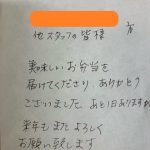 他スタッフの皆様方
美味しいお弁当を
届けてくださり、ありがとう
ございました。あと1日ありますが
来年もまたよろしく
お願い致します